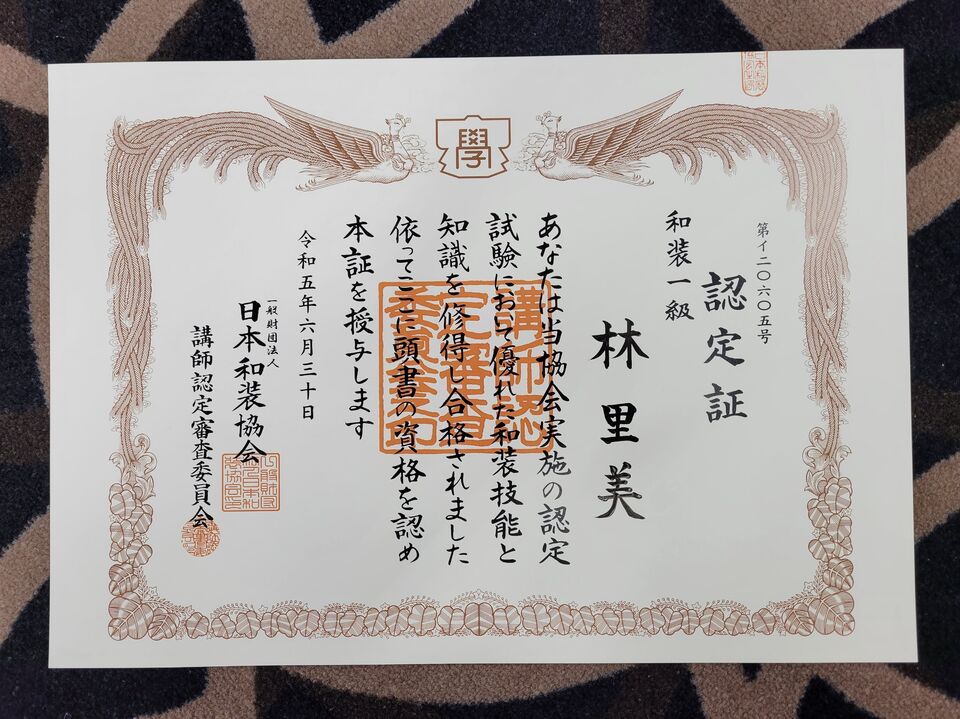 學
第イ二〇六〇五号
認定証
和装一級
林里美
あなたは当協会実施の認定
試験において優れた和装技能と
知識を修得し合格されました
依ってここに頭書の資格を認め
本証を授与します
令和五年六月三十日
一般財団法人
日本和装協会
講師認定審査委員会
講師認
定審査
委員会印